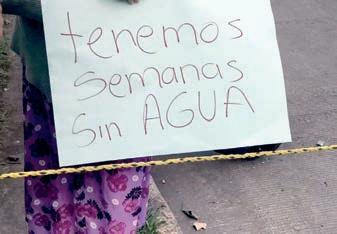 tenemos
semanas
sin AGUA